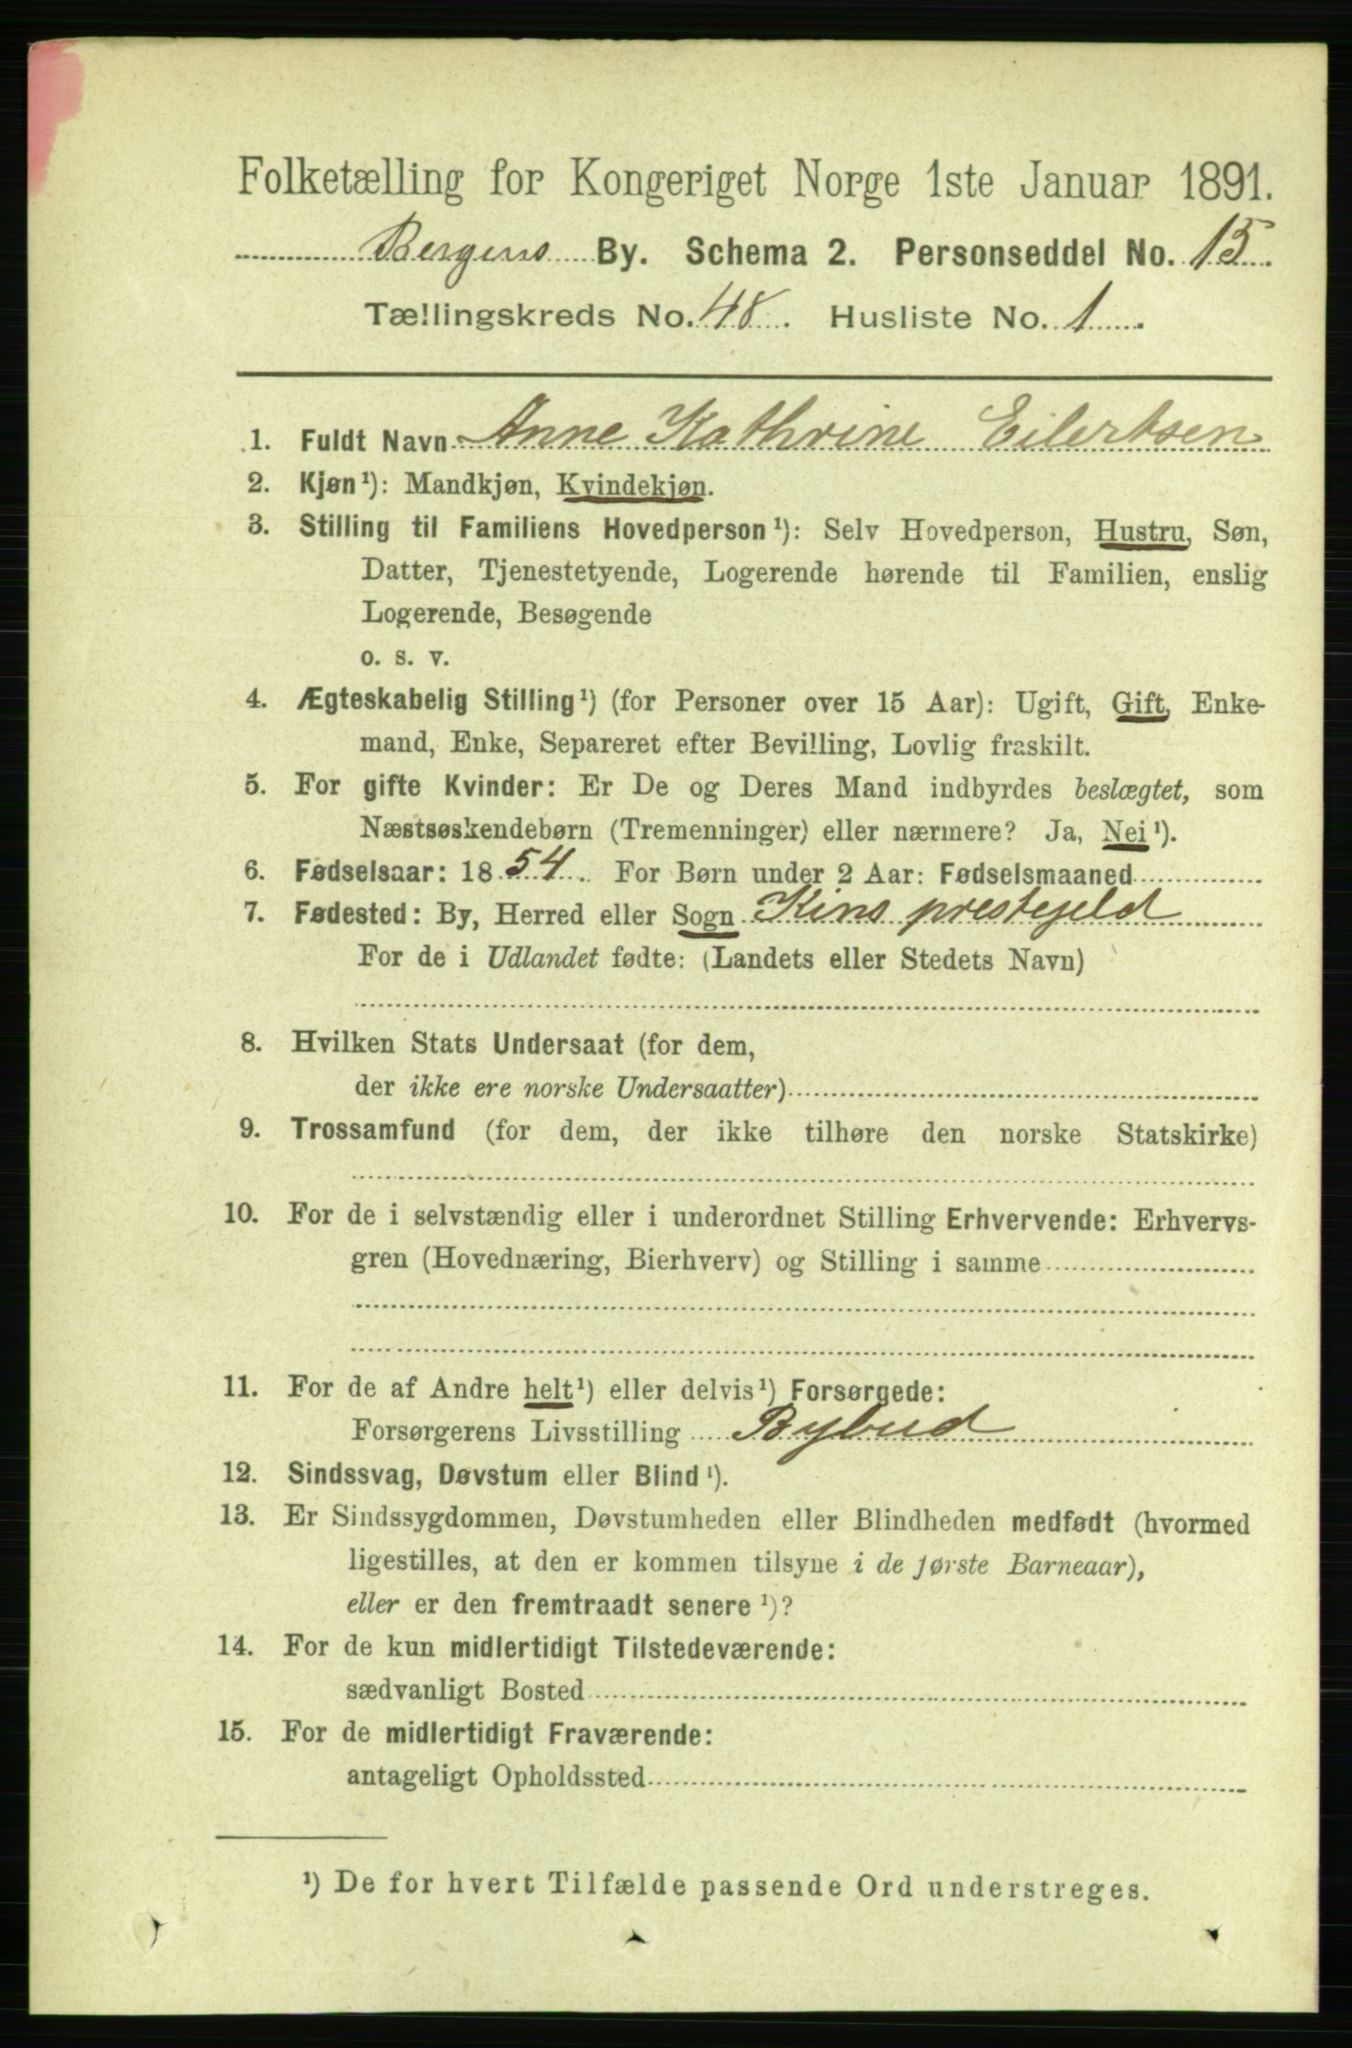 Folketælling for Kongeriget Norge 1ste Januar 1891.
Bergens By. Schema 2. Personseddel No. 15.
Tællingskreds No. 48. Husliste No. 1.
1. Fuldt Navn Anne Kathrine Eilertsen
2. Kjøn¹): Mandkjøn, Kvindekjøn.
3. Stilling til Familiens Hovedperson¹): Selv Hovedperson, Hustru, Søn,
Datter, Tjenestetyende, Logerende hørende til Familien, enslig
Logerende, Besøgende
o. s. v.
4. Ægteskabelig Stilling¹) (for Personer over 15 Aar): Ugift, Gift, Enke-
mand, Enke, Separeret efter Bevilling, Lovlig fraskilt.
5. For gifte Kvinder: Er De og Deres Mand indbyrdes beslægtet, som
Næstsøskendebørn (Tremenninger) eller nærmere? Ja, Nei¹).
6. Fødselsaar: 1854. For Børn under 2 Aar: Fødselsmaaned
7. Fødested: By, Herred eller Sogn Kins prestegeld
For de i Udlandet fødte: (Landets eller Stedets Navn)
8. Hvilken Stats Undersaat (for dem,
der ikke ere norske Undersaatter)
9. Trossamfund (for dem, der ikke tilhøre den norske Statskirke)
10. For de i selvstændig eller i underordnet Stilling Erhvervende: Erhvervs-
gren (Hovednæring, Bierhverv) og Stilling i samme
11. For de af Andre helt¹) eller delvis¹) Forsørgede:
Forsørgerens Livsstilling Bybud
12. Sindssvag, Døvstum eller Blind¹).
13. Er Sindssygdommen, Døvstumheden eller Blindheden medfødt (hvormed
ligestilles, at den er kommen tilsyne i de første Barneaar),
eller er den fremtraadt senere¹)?
14. For de kun midlertidigt Tilstedeværende:
sædvanligt Bosted
15. For de midlertidigt Fraværende:
antageligt Opholdssted
¹) De for hvert Tilfælde passende Ord understreges.